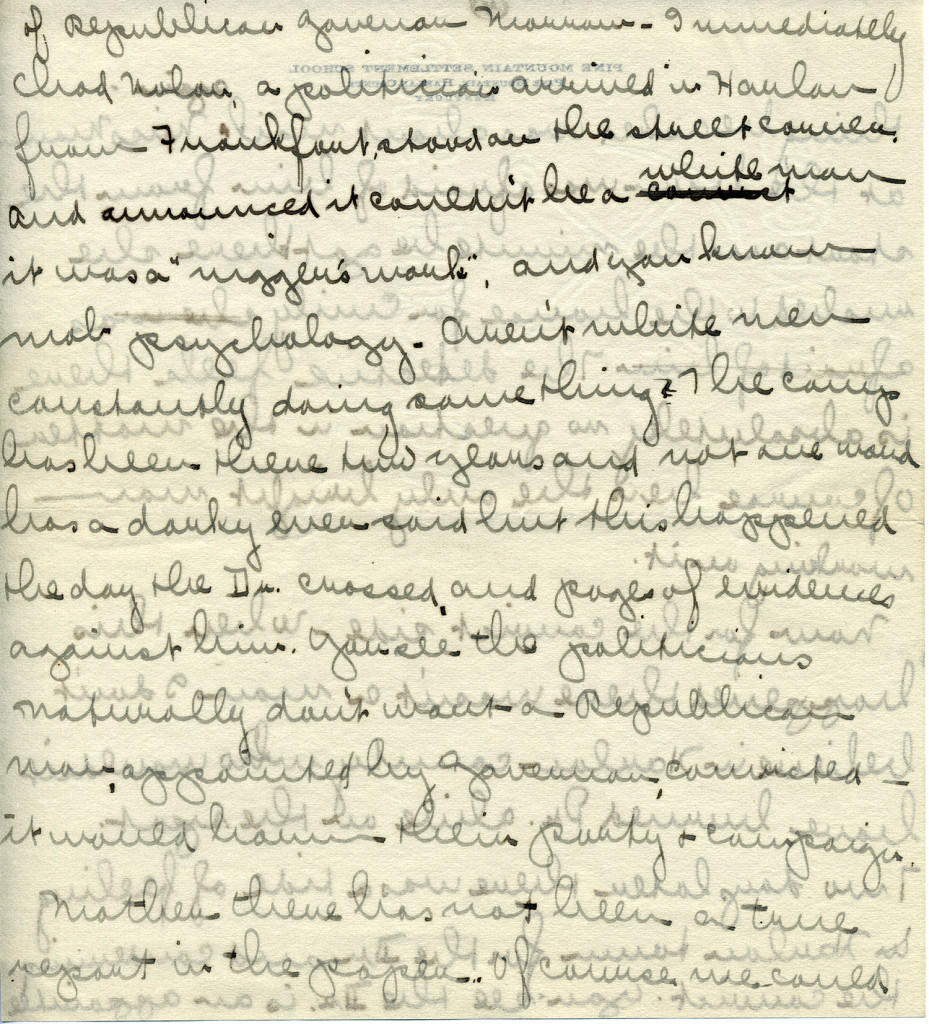 of Republican Governor Morrow - Immediately
Chad Nolan, a politician arrived in Harlan
from Frankfort, stood on the street corner,
and announced it couldn't be a white man
it was a "nigger's work", and you know
mob psychology. Aren't white men
constantly doing same thing? The camp
has been there two years and not one word
has a darky even said but this happened
the day the Dr. crossed, and pages of evidences
against him. You see the politicians
naturally don't want a Republican
man, appointed by Governor, convicted -
it would harm their party & campaign.
Mother there has not been a true
report in the paper.. Of course we could